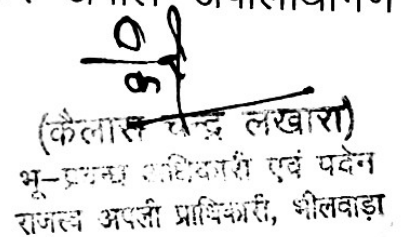 अपील अपीलार्थीगण
(कैलाश चन्द्र लखारा)
भू-प्रबन्ध अधिकारी एवं पदेन
राजस्व अपील प्राधिकारी, भीलवाड़ा